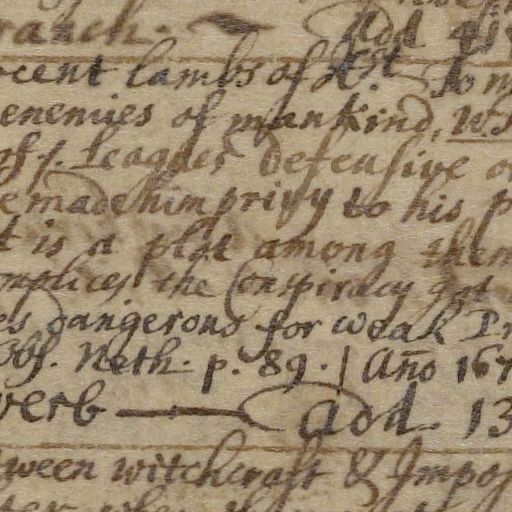 ranch. Add
ocent lambs of
enemies of mankind,
of leagues defensive
e made him privy to his p
t is a plot among them
mplices the Conspiracy got
es dangerous for weak Pr
Obs. Neth. p. 89. | Año 167
verb — add. 13
tween witchcraft & Impos